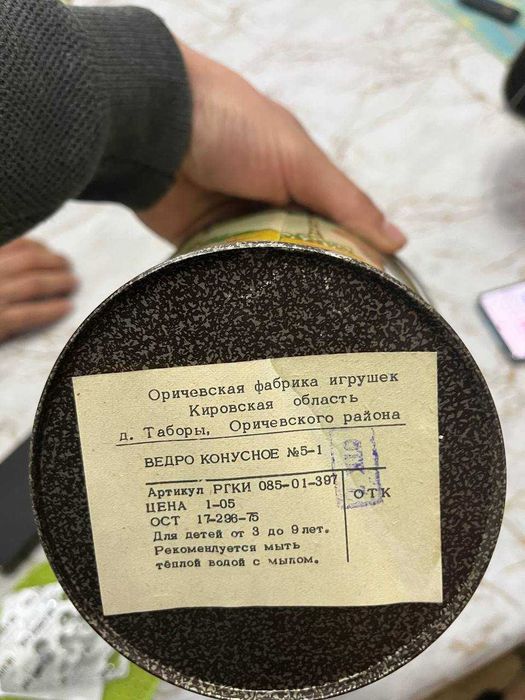 Оричевская фабрика игрушек
Кировская область
д. Таборы, Оричевского района
ВЕДРО КОНУСНОЕ №5-1
Артикул РГКИ 085-01-397
ОТК
ЦЕНА 1-05
ОСТ 17-296-75
Для детей от 3 до 9 лет.
Рекомендуется мыть
тёплой водой с мылом.